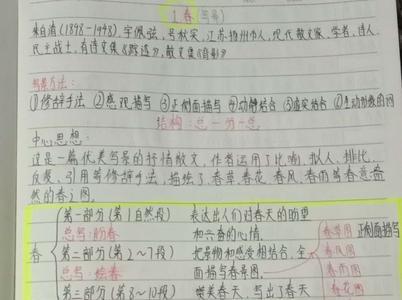 1.春(写景)
朱自清(1898-1948),字佩弦,号秋实,江苏扬州市人,现代散文家、学者、诗人、
民主战士,有诗文集《踪迹》,散文集《背影》
写景方法:
①修辞手法 ②感观描写 ③正侧面描写 ④动静结合 ⑤虚实结合 ⑥生动形象的词
结构:总—分—总
中心思想:
这是一篇优美写景的抒情散文,作者运用了比喻、拟人、排比、
反复、引用等修辞手法,描绘了春草、春花、春风、春雨等春意盎
然的春之图。
第一部分(第1自然段) 表达出人们对春天的盼望
总写:盼春 和兴奋的心情。 春草图 正侧面描写
春 第二部分(第2~7段) 把景物和感受相结合,全 春风图
总写:绘春 面描写春景图. 春雨图
第三部分(第8~10段) 赞美春天,写出了春天 春花图